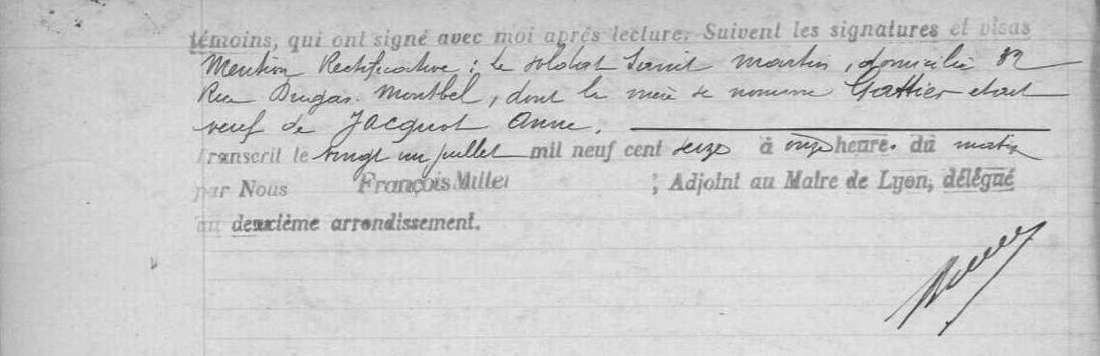 témoins, qui ont signé avec moi après lecture. Suivent les signatures et visas
Mention Rectificative : Le soldat Martin, domicilié 82
Rue Dugas Montbel, dont la mère se nomme Gattier etait
veuf de Jacquot Anne.
Transcrit le vingt un juillet mil neuf cent seize à onze heure. du matin
par Nous François Millet ; Adjoint au Maire de Lyon, délégué
au deuxième arrondissement.